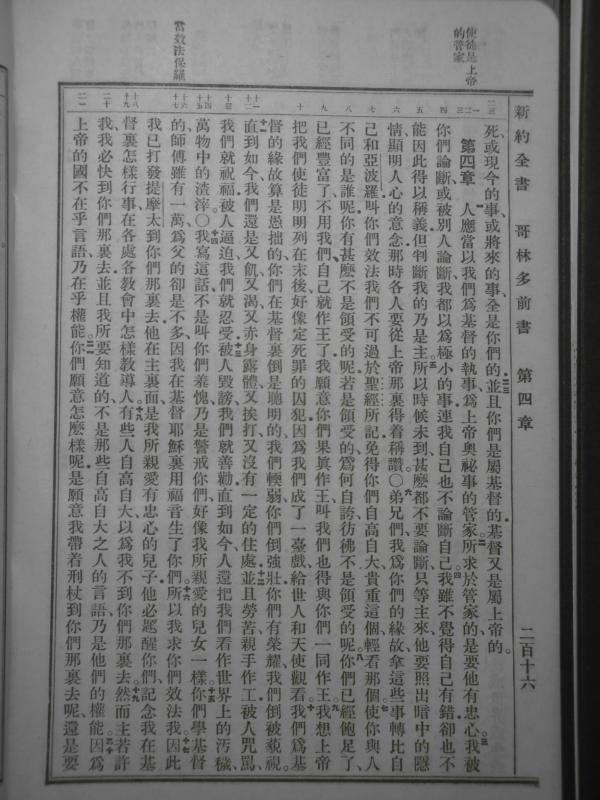 新約全書 哥林多前書 第四章 二百十六
使徒是上帝
的管家
當效法保羅
死或現今的事或將來的事全是你們的並且你們是屬基督的基督又是屬上帝的
第四章 人應當以我們為基督的執事為上帝奧祕事的管家所求於管家的是要他有忠心我被
你們論斷或被別人論斷我都以為極小的事連我自己也不論斷自己我雖不覺得自己有錯卻也不
能因此得以稱義但判斷我的乃是主所以時候未到甚麼都不要論斷只等主來他要照出暗中的隱
情顯明人心的意念那時各人要從上帝那裏得着稱讚○弟兄們我為你們的緣故拿這些事轉比自
己和亞波羅叫你們效法我們不可過於聖經所記免得你們自高自大貴重這個輕看那個使你與人
不同的是誰呢你有甚麼不是領受的呢若是領受的為何自誇彷彿不是領受的呢你們已經飽足了
已經豐富了不用我們自己就作王了我願意你們果眞作王叫我們也得與你們一同作王我想上帝
把我們使徒明明列在末後好像定死罪的囚犯因為我們成了一臺戲給世人和天使觀看我們為基
督的緣故算是愚拙的你們在基督裏倒是聰明的我們輭弱你們倒強壯你們有榮耀我們倒被藐視
直到如今我們還是又飢又渴又赤身露體又挨打又沒有一定的住處並且勞苦親手作工被人咒罵
我們就祝福被人逼迫我們就忍受被人毀謗我們就善勸直到如今人還把我們看作世界上的汚穢
萬物中的渣滓○我寫這話不是叫你們羞愧乃是警戒你們好像我所親愛的兒女一樣你們學基督
的師傅雖有一萬為父的卻是不多因我在基督耶穌裏用福音生了你們所以我求你們效法我因此
我已打發提摩太到你們那裏去他在主裏面是我所親愛有忠心的兒子他必題醒你們記念我在基
督裏怎樣行事在各處各教會中怎樣教導人有些人自高自大以為我不到你們那裏去然而主若許
我我必快到你們那裏去並且我所要知道的不是那些自高自大之人的言語乃是他們的權能因為
上帝的國不在乎言語乃在乎權能你們願意怎麼樣呢是願意我帶着刑杖到你們那裏去呢還是要